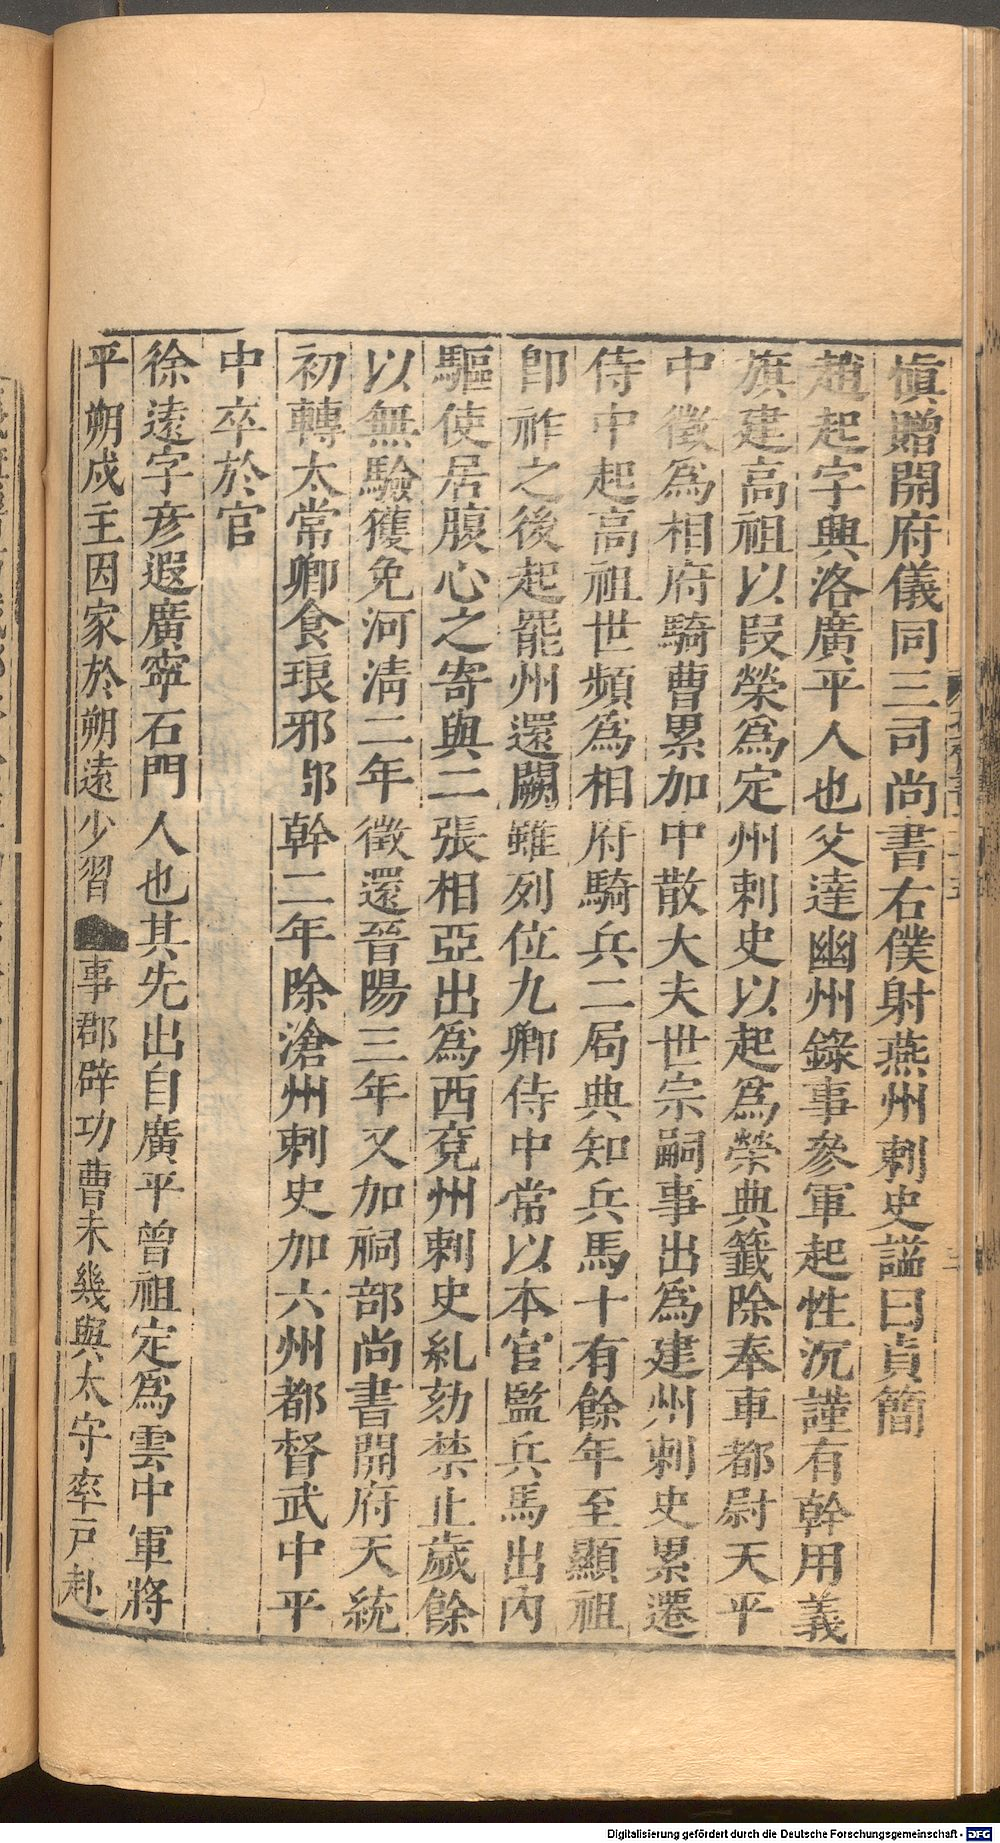 愼贈開府儀同三司尚書右僕射燕州刺史謚曰貞簡
趙起字興洛廣平人也父達幽州錄事參軍起性沉謹有幹用義
旗建高祖以叚榮爲定州刺史以起爲榮典籤除奉車都尉天平
中徵爲相府騎曹累加中散大夫世宗嗣事出爲建州刺史累遷
侍中起高祖世頻爲相府騎兵二局典知兵馬十有餘年至顯祖
卽祚之後起罷州還闕雖列位九卿侍中常以本官監兵馬出內
驅使居腹心之寄與二張相亞出爲西兗州刺史糺劾禁止歲餘
以無驗獲免河淸二年徵還晉陽三年又加祠部尚書開府天統
初轉太常卿食琅邪郡幹二年除滄州刺史加六州都督武中平
中卒於官
徐遠字彥遐廣寧石門人也其先出自廣平曾祖定爲雲中軍將
平朔戍主因家於朔遠少習事郡辟功曹未幾與太守率戶赴
Digitalisierung gefördert durch die Deutsche Forschungsgemeinschaft - DFG